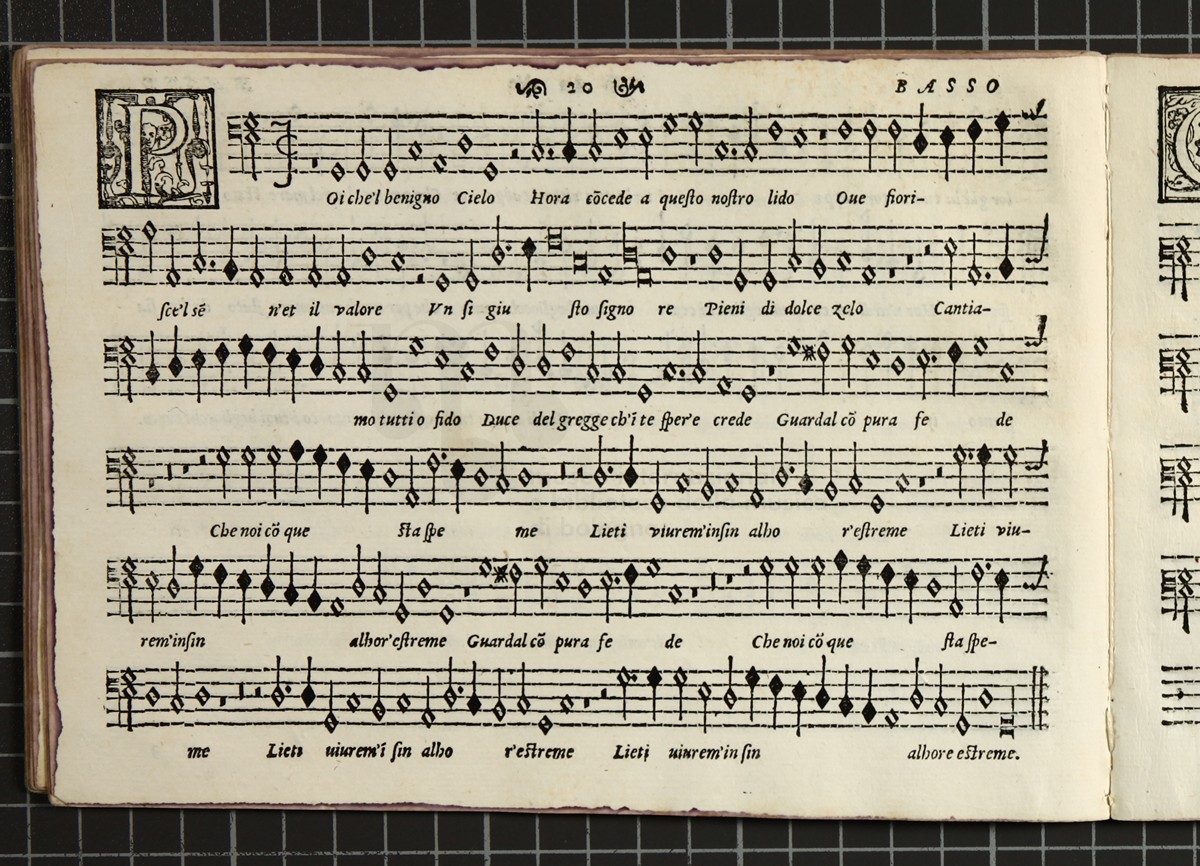 20 BASSO
P Oi che'l benigno Cielo Hora cōcede a queſto noſtro lido Oue fiori-
ſce'l sẽ n'et il valore Vn ſi giu ſto ſigno re Pieni di dolce zelo Cantia-
mo tutti o fido Duce del gregge ch'ī te ſper'e crede Guardal cō pura fe de
Che noi cō que ſta ſpe me Lieti viurem'inſin alho r'eſtreme Lieti viu-
rem'inſin alhor'eſtreme Guardal cō pura fe de Che noi cō que ſta ſpe-
me Lieti uiurem'ī ſin alho r'eſtreme Lieti uiurem'in ſin alhore eſtreme.